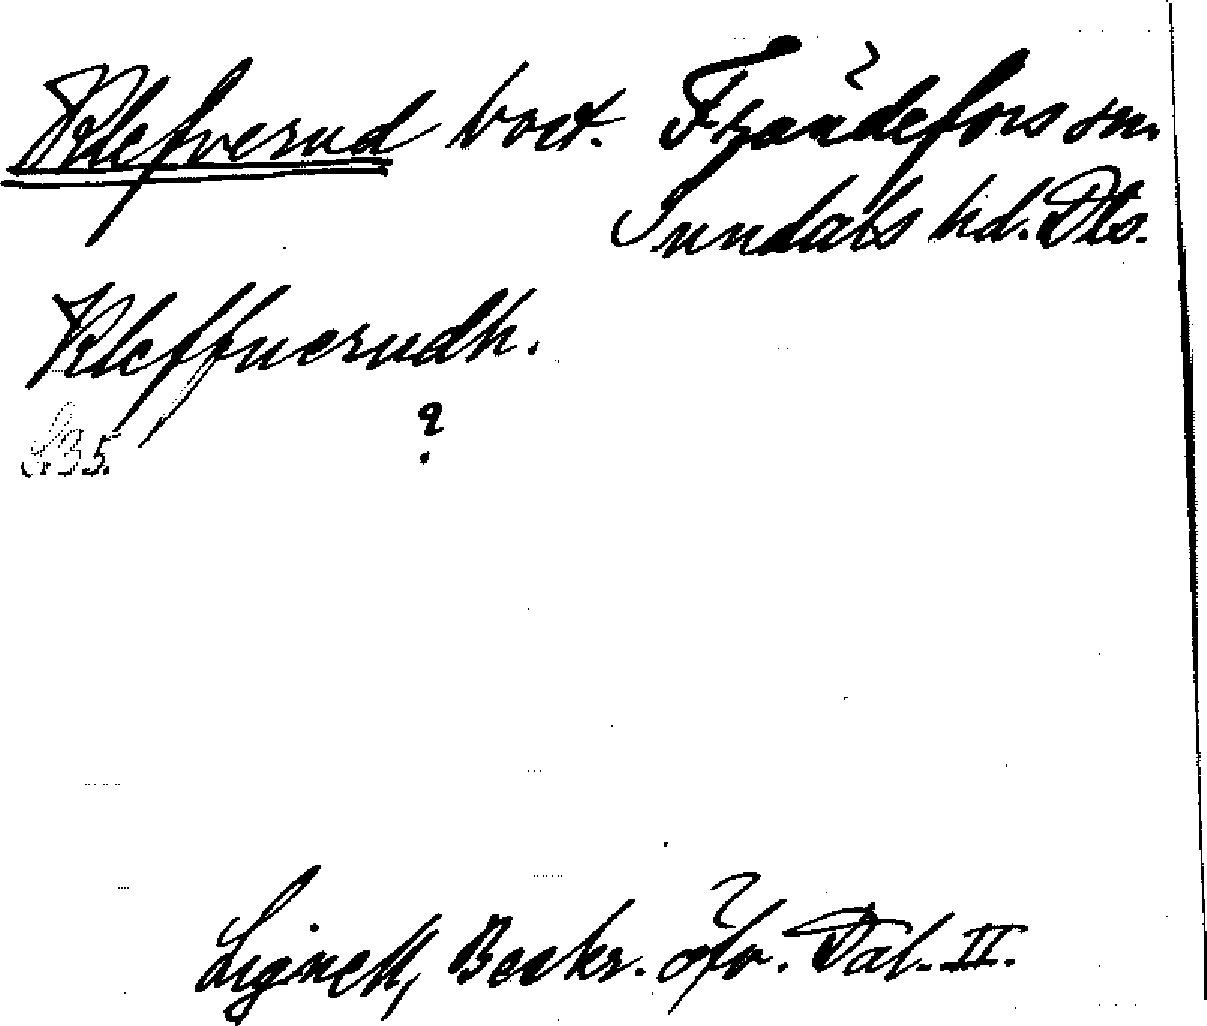 Klefverud bost. Frändefors sn.
Sundals hd. Dls.
Kleffuerudh.
S. 35. ?
Lignell, Beskr. öfv. Dal. II.